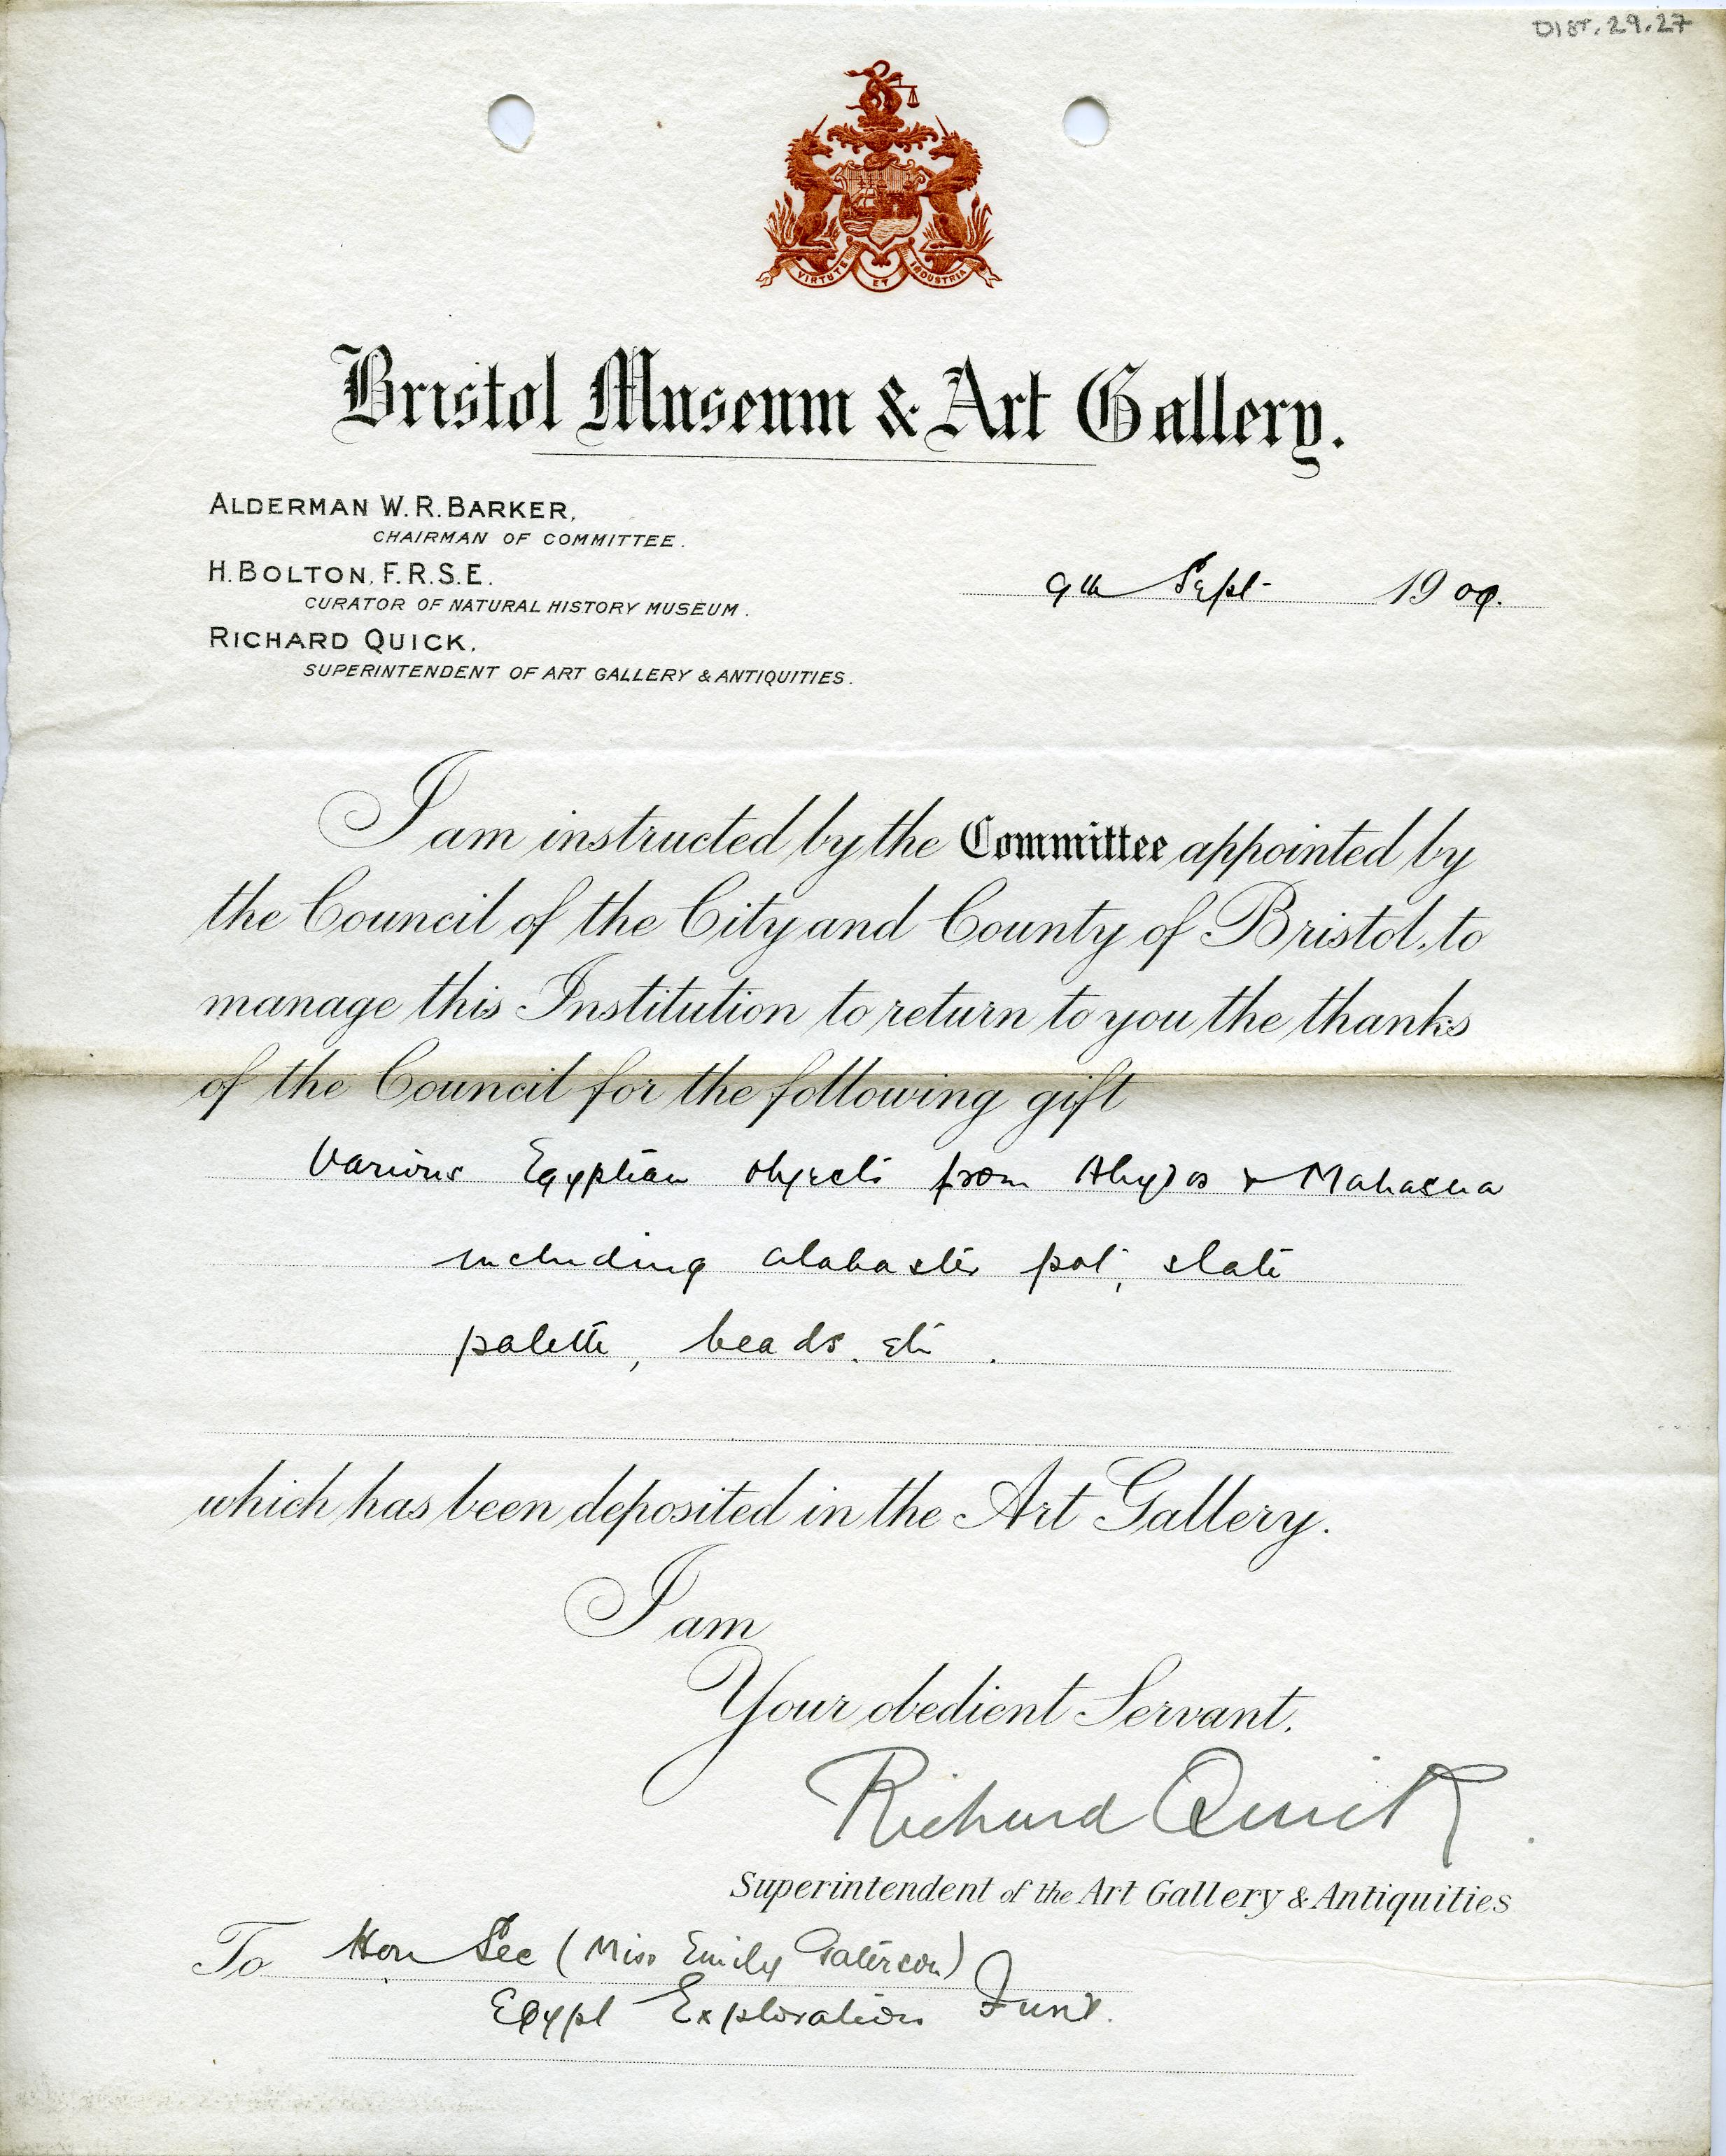 DIST.29.27
VIRTUTE ET INDUSTRIA
Bristol Museum & Art Gallery.
ALDERMAN W.R. BARKER,
CHAIRMAN OF COMMITTEE.
H. BOLTON, F.R.S.E.
CURATOR OF NATURAL HISTORY MUSEUM.
RICHARD QUICK,
SUPERINTENDENT OF ART GALLERY & ANTIQUITIES.
9th Sept 1909.
I am instructed by the Committee appointed by
the Council of the City and County of Bristol, to
manage this Institution to return to you the thanks
of the Council for the following gift
Various Egyptian objects from Abydos & Mahasna
including alabaster pot, slate
palette, beads. etc.
which has been deposited in the Art Gallery.
I am
Your obedient Servant.
Richard Quick.
Superintendent of the Art Gallery & Antiquities
To Hon Sec (Miss Emily Paterson)
Egypt Exploration Fund.